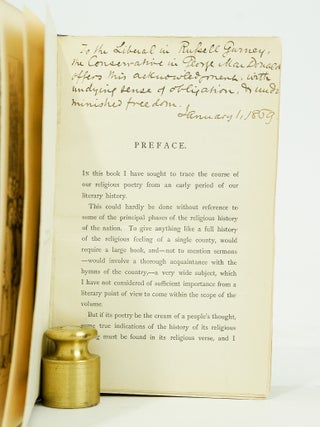 To the Liberal in Russell Gurney,
the Conservative in George MacDonald
offers this acknowledgment, with
undying sense of obligation, & undi-
minished freedom.
January 1, 1869
PREFACE.
In this book I have sought to trace the course of
our religious poetry from an early period of our
literary history.
This could hardly be done without reference to
some of the principal phases of the religious history
of the nation. To give anything like a full history
of the religious feeling of a single county, would
require a large book, and—not to mention sermons
—would involve a thorough acquaintance with the
hymns of the country,—a very wide subject, which
I have not considered of sufficient importance from a
literary point of view to come within the scope of the
volume.
But if its poetry be the cream of a people's thought,
some true indications of the history of its religious
must be found in its religious verse, and I